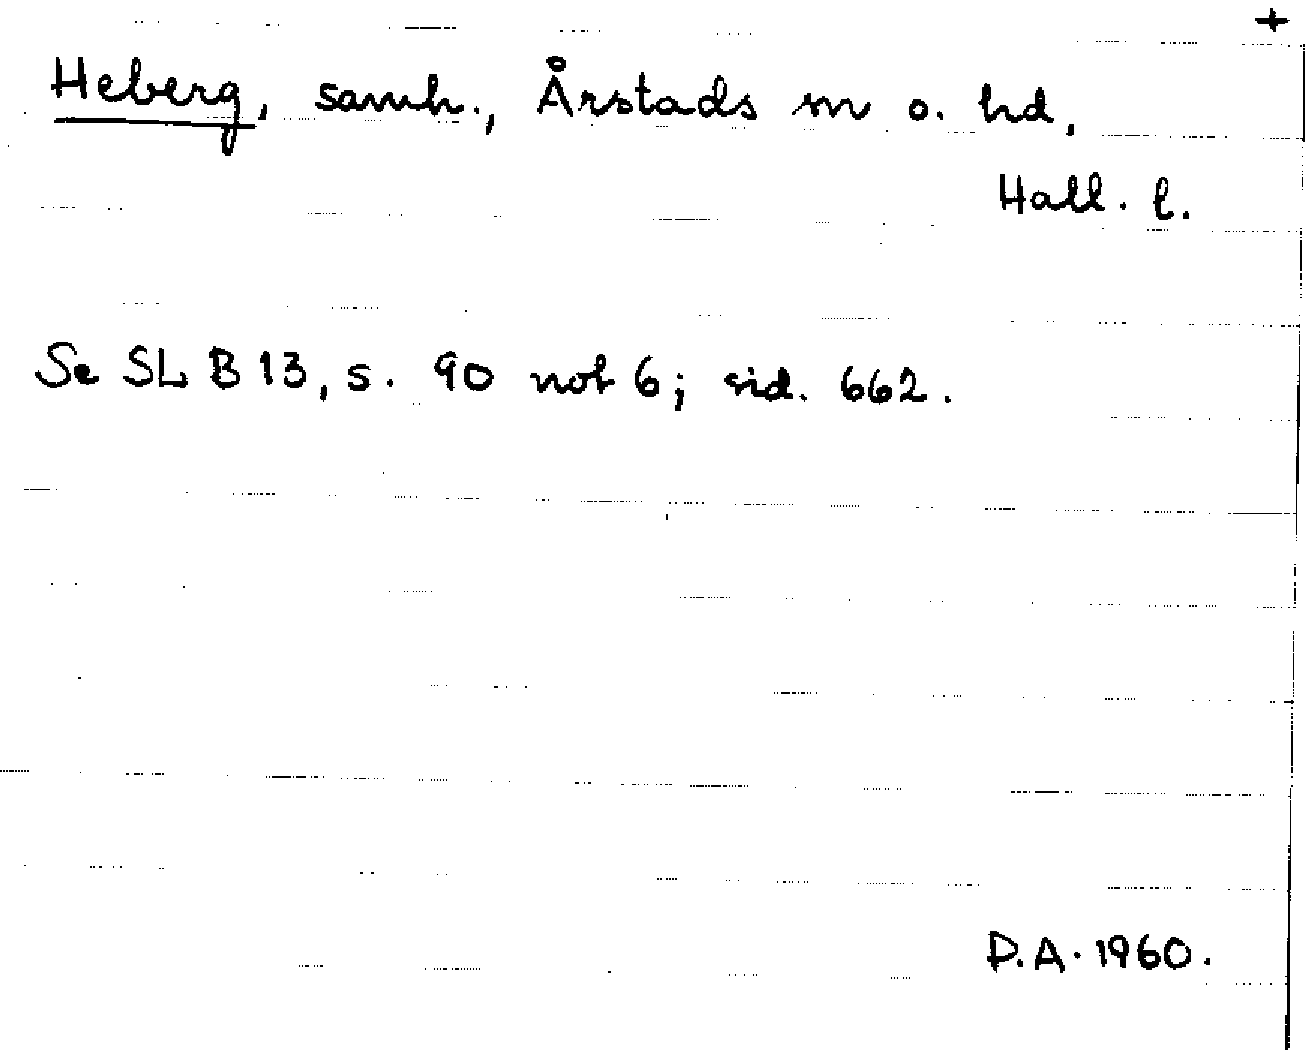 +
Heberg, samh., Årstads sn o. hd,
Hall. l.
Se SLB 13, s. 90 not 6; sid. 662.
P.A. 1960.